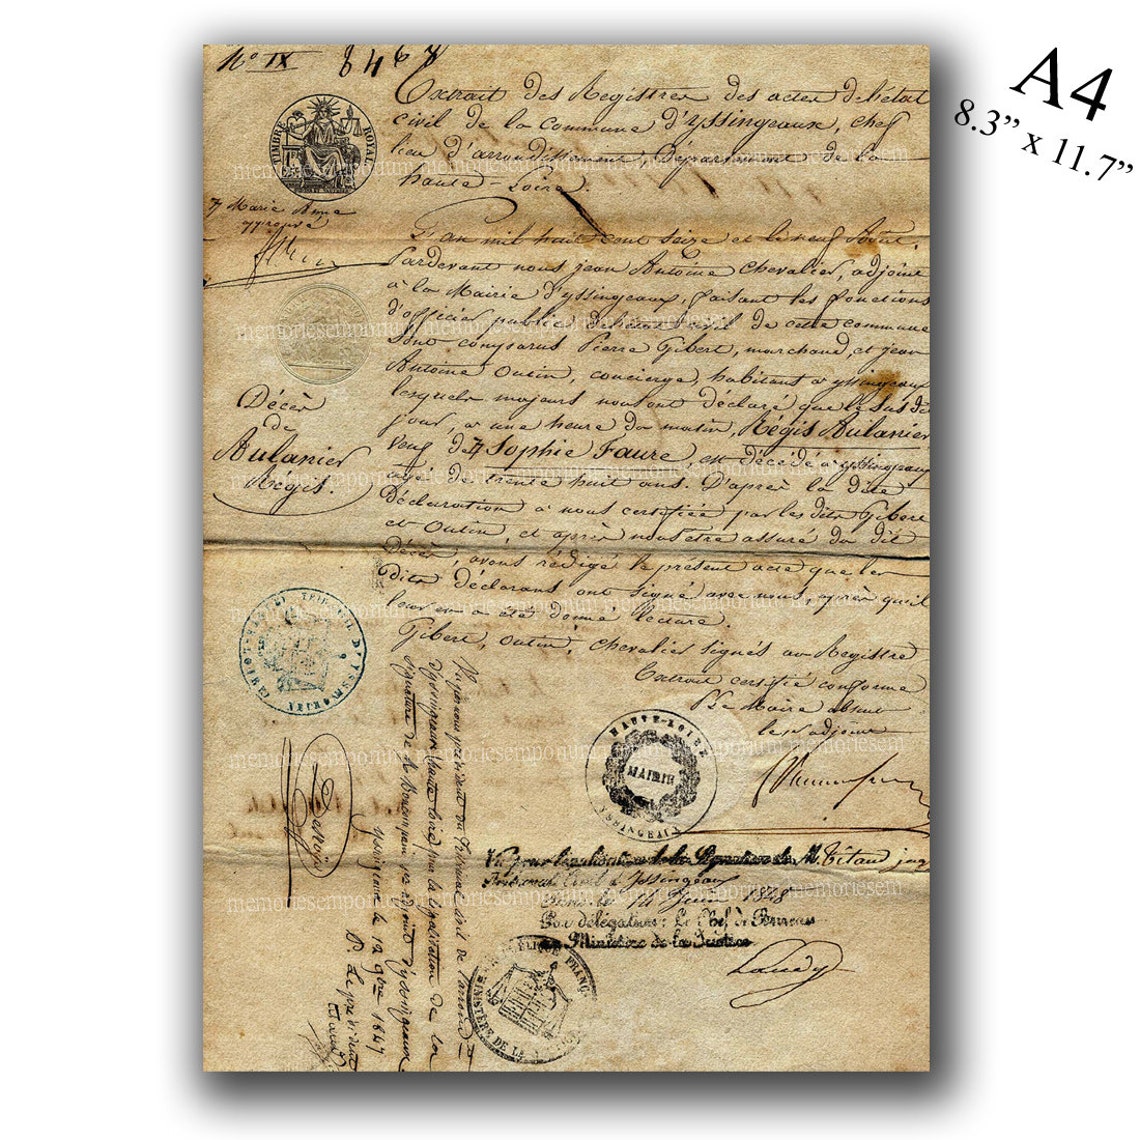 A4
8.3” x 11.7”
No IX 8467
TIMBRE ROYAL
Extrait des Registres des actes de l'état
civil de la Commune d'yssingeaux, chef
lieu d'arrondissement, Département de la
haute-Loire.
Marie Anne
approuvé
L'an mil huit cent seize et le neuf
Pardevant nous jean Antoine Chevalier, adjoint
à la Mairie d'yssingeaux, faisant les fonctions
d'officier public de l'état civil de cette commune
sont comparus Pierre Gibert, marchand, et jean
Antoine Outin, concierge, habitant à yssingeaux
lesquels majeurs nous ont déclaré que le
jour, à une heure du matin, Régis Aulanier
veuf de Sophie Faure est décédé à yssingeaux
agé de trente huit ans. D'après la dite
Déclaration à nous certifiée par les dits Gibert
et Outin, et après nous être assuré du dit
Décès, avons rédigé le présent acte que les
dits déclarans ont signé avec nous, après qu'il
leur en a été donné lecture.
Gibert, Outin, Chevalier signés au Registre
Extrait certifié conforme
Le Maire absent
les adjoint
Décès
de
Aulanier
Régis.
HAUTE-LOIRE
MAIRIE
YSSINGEAUX
Vu pour légalisation de la Signature de M. Titaud juge
Tribunal Civil à Yssingeaux
Paris le 14 Juin 1848
Par délégation: Le Chef de Bureau
Ministère de la Justice
RÉPUBLIQUE FRANÇ
MINISTÈRE DE LA
Vu par nous président du Tribunal civil de
d'yssingeaux haute loire pour la légalisation de la
signature de M. adjoint d'yssingeaux
yssingeaux le 12 1847
Le président
memoriesemporium memoriesemporium memoriesem
memoriesemporium memoriesemporium
memoriesemporium memoriesemporium memoriesem
memoriesemporium memoriesemporium memoriesem
memoriesemporium memoriesemporium memoriesem
memoriesemporium memoriesemporium memoriesem